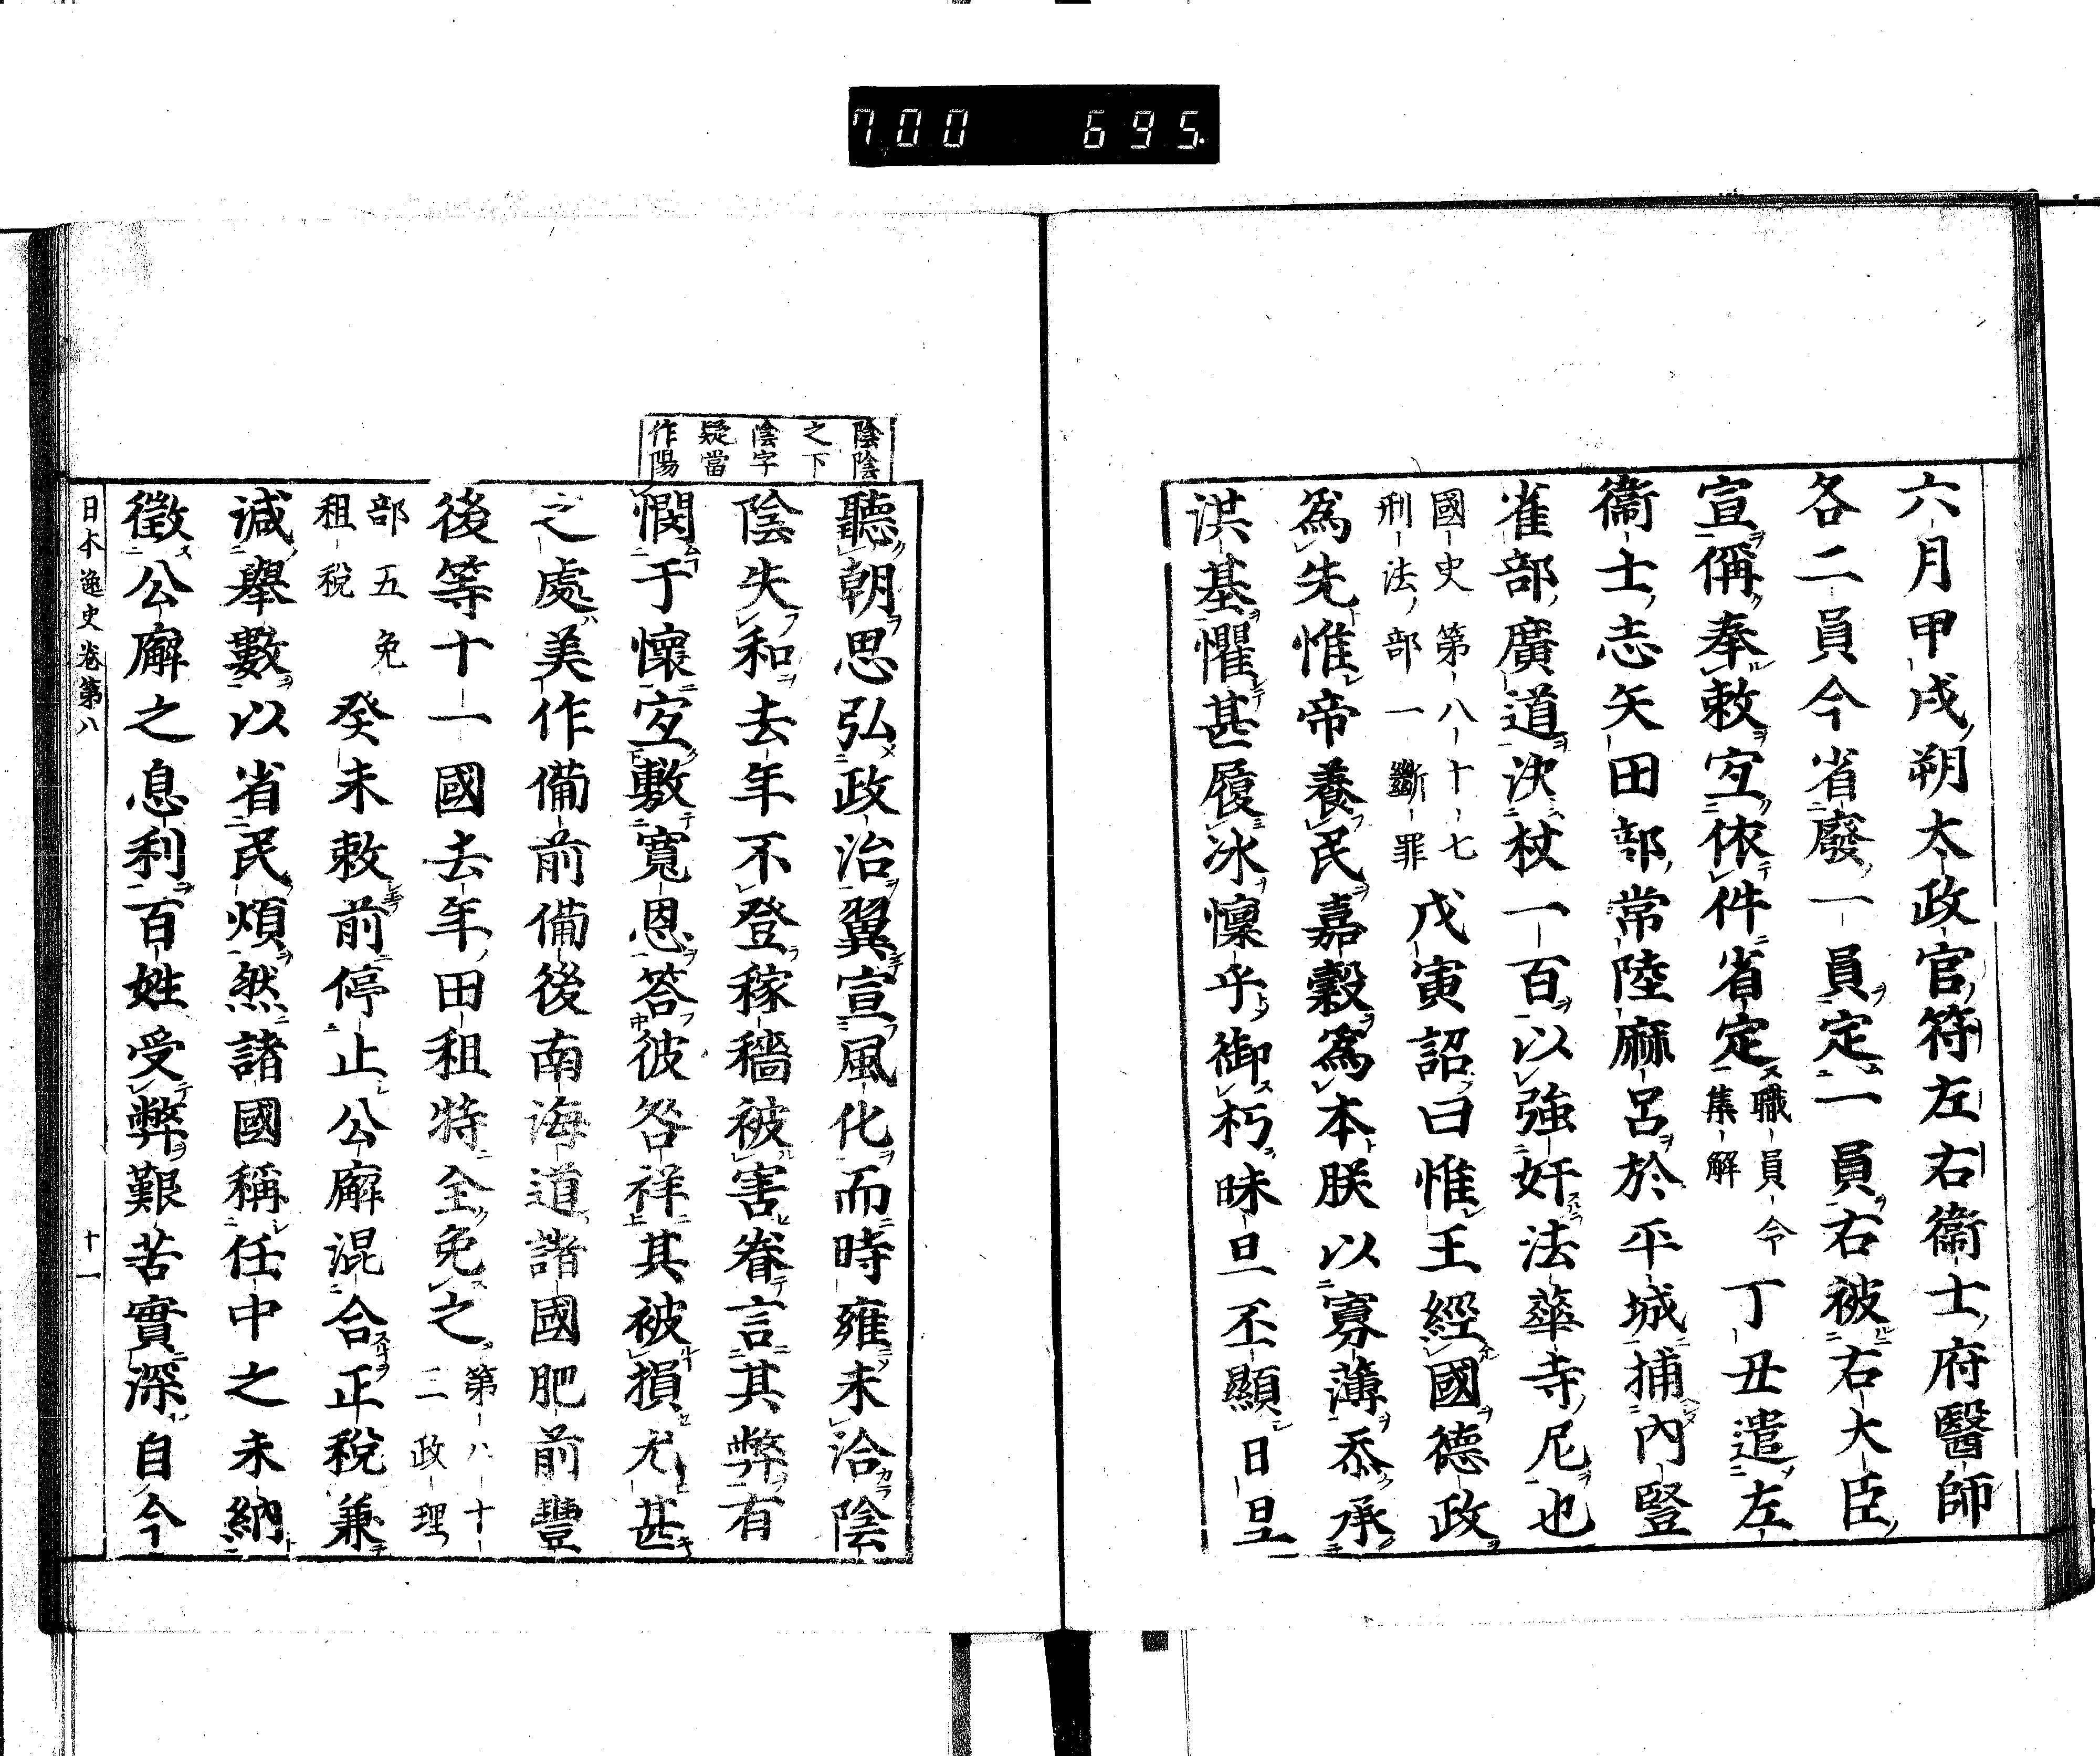 700 695
六月甲戌朔太政官符左右衞士府醫師
各二員今省廢一員定一員右被右大臣
宣偁奉敕宐依件省定職員令集解丁丑遣左
衞士志矢田部常陸麻呂於平城捕內豎
雀部廣道決杖一百以強奸法華寺尼也
國史第八十七刑法部一斷罪戊寅詔曰惟王經國德政
爲先惟帝養民嘉穀爲本朕以寡薄忝承
洪基懼甚履冰懍乎御朽昧旦丕顯日昃
陰陰
之下
陰字
疑當
作陽
聽朝思弘政治翼宣風化而時雍未洽陰
陰失和去年不登稼穡被害眷言其弊有
憫于懷宐敷寬恩答彼咎祥其被損尤甚
之處美作備前備後南海道諸國肥前豐
後等十一國去年田租特全免之第八十二政理
部五免租稅癸未敕前停止公廨混合正稅兼
減舉數以省民煩然諸國稱任中之未納
徵公廨之息利百姓受弊艱苦實深自今
日本逸史卷第八 十一